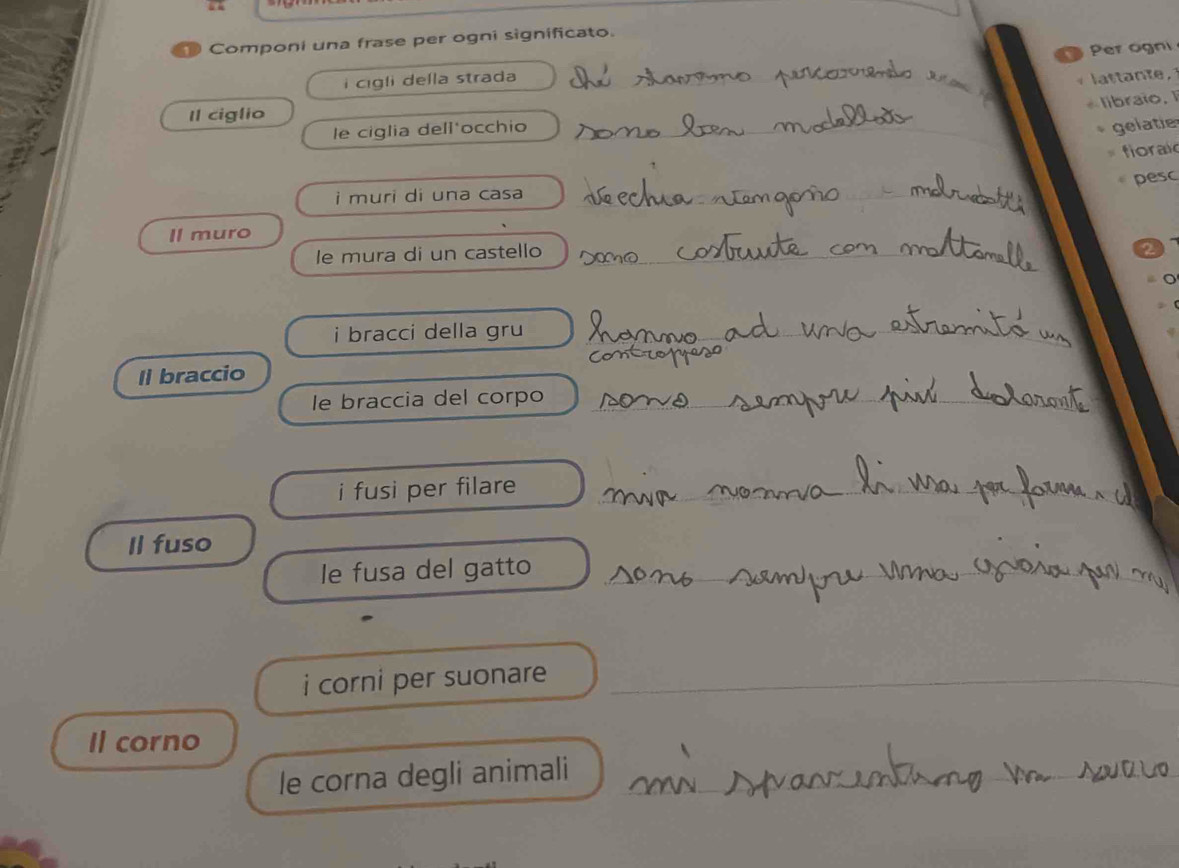 1 Componi una frase per ogni significato.
Il ciglio
i cigli della strada che stavamo percorrendo
le ciglia dell'occhio sono ben modellate
Il muro
i muri di una casa vecchia vengono malridotti
le mura di un castello sono costruite con mattonelle
Il braccio
i bracci della gru hanno ad una estremità un
contrappeso
le braccia del corpo sono sempre più doloranti
Il fuso
i fusi per filare mia nonna li usa per
le fusa del gatto sono sempre una gioia per me
Il corno
i corni per suonare
le corna degli animali mi spaventano
1 Per ogni
lattante,
libraio,
gelatie
fioraio
pesc
2